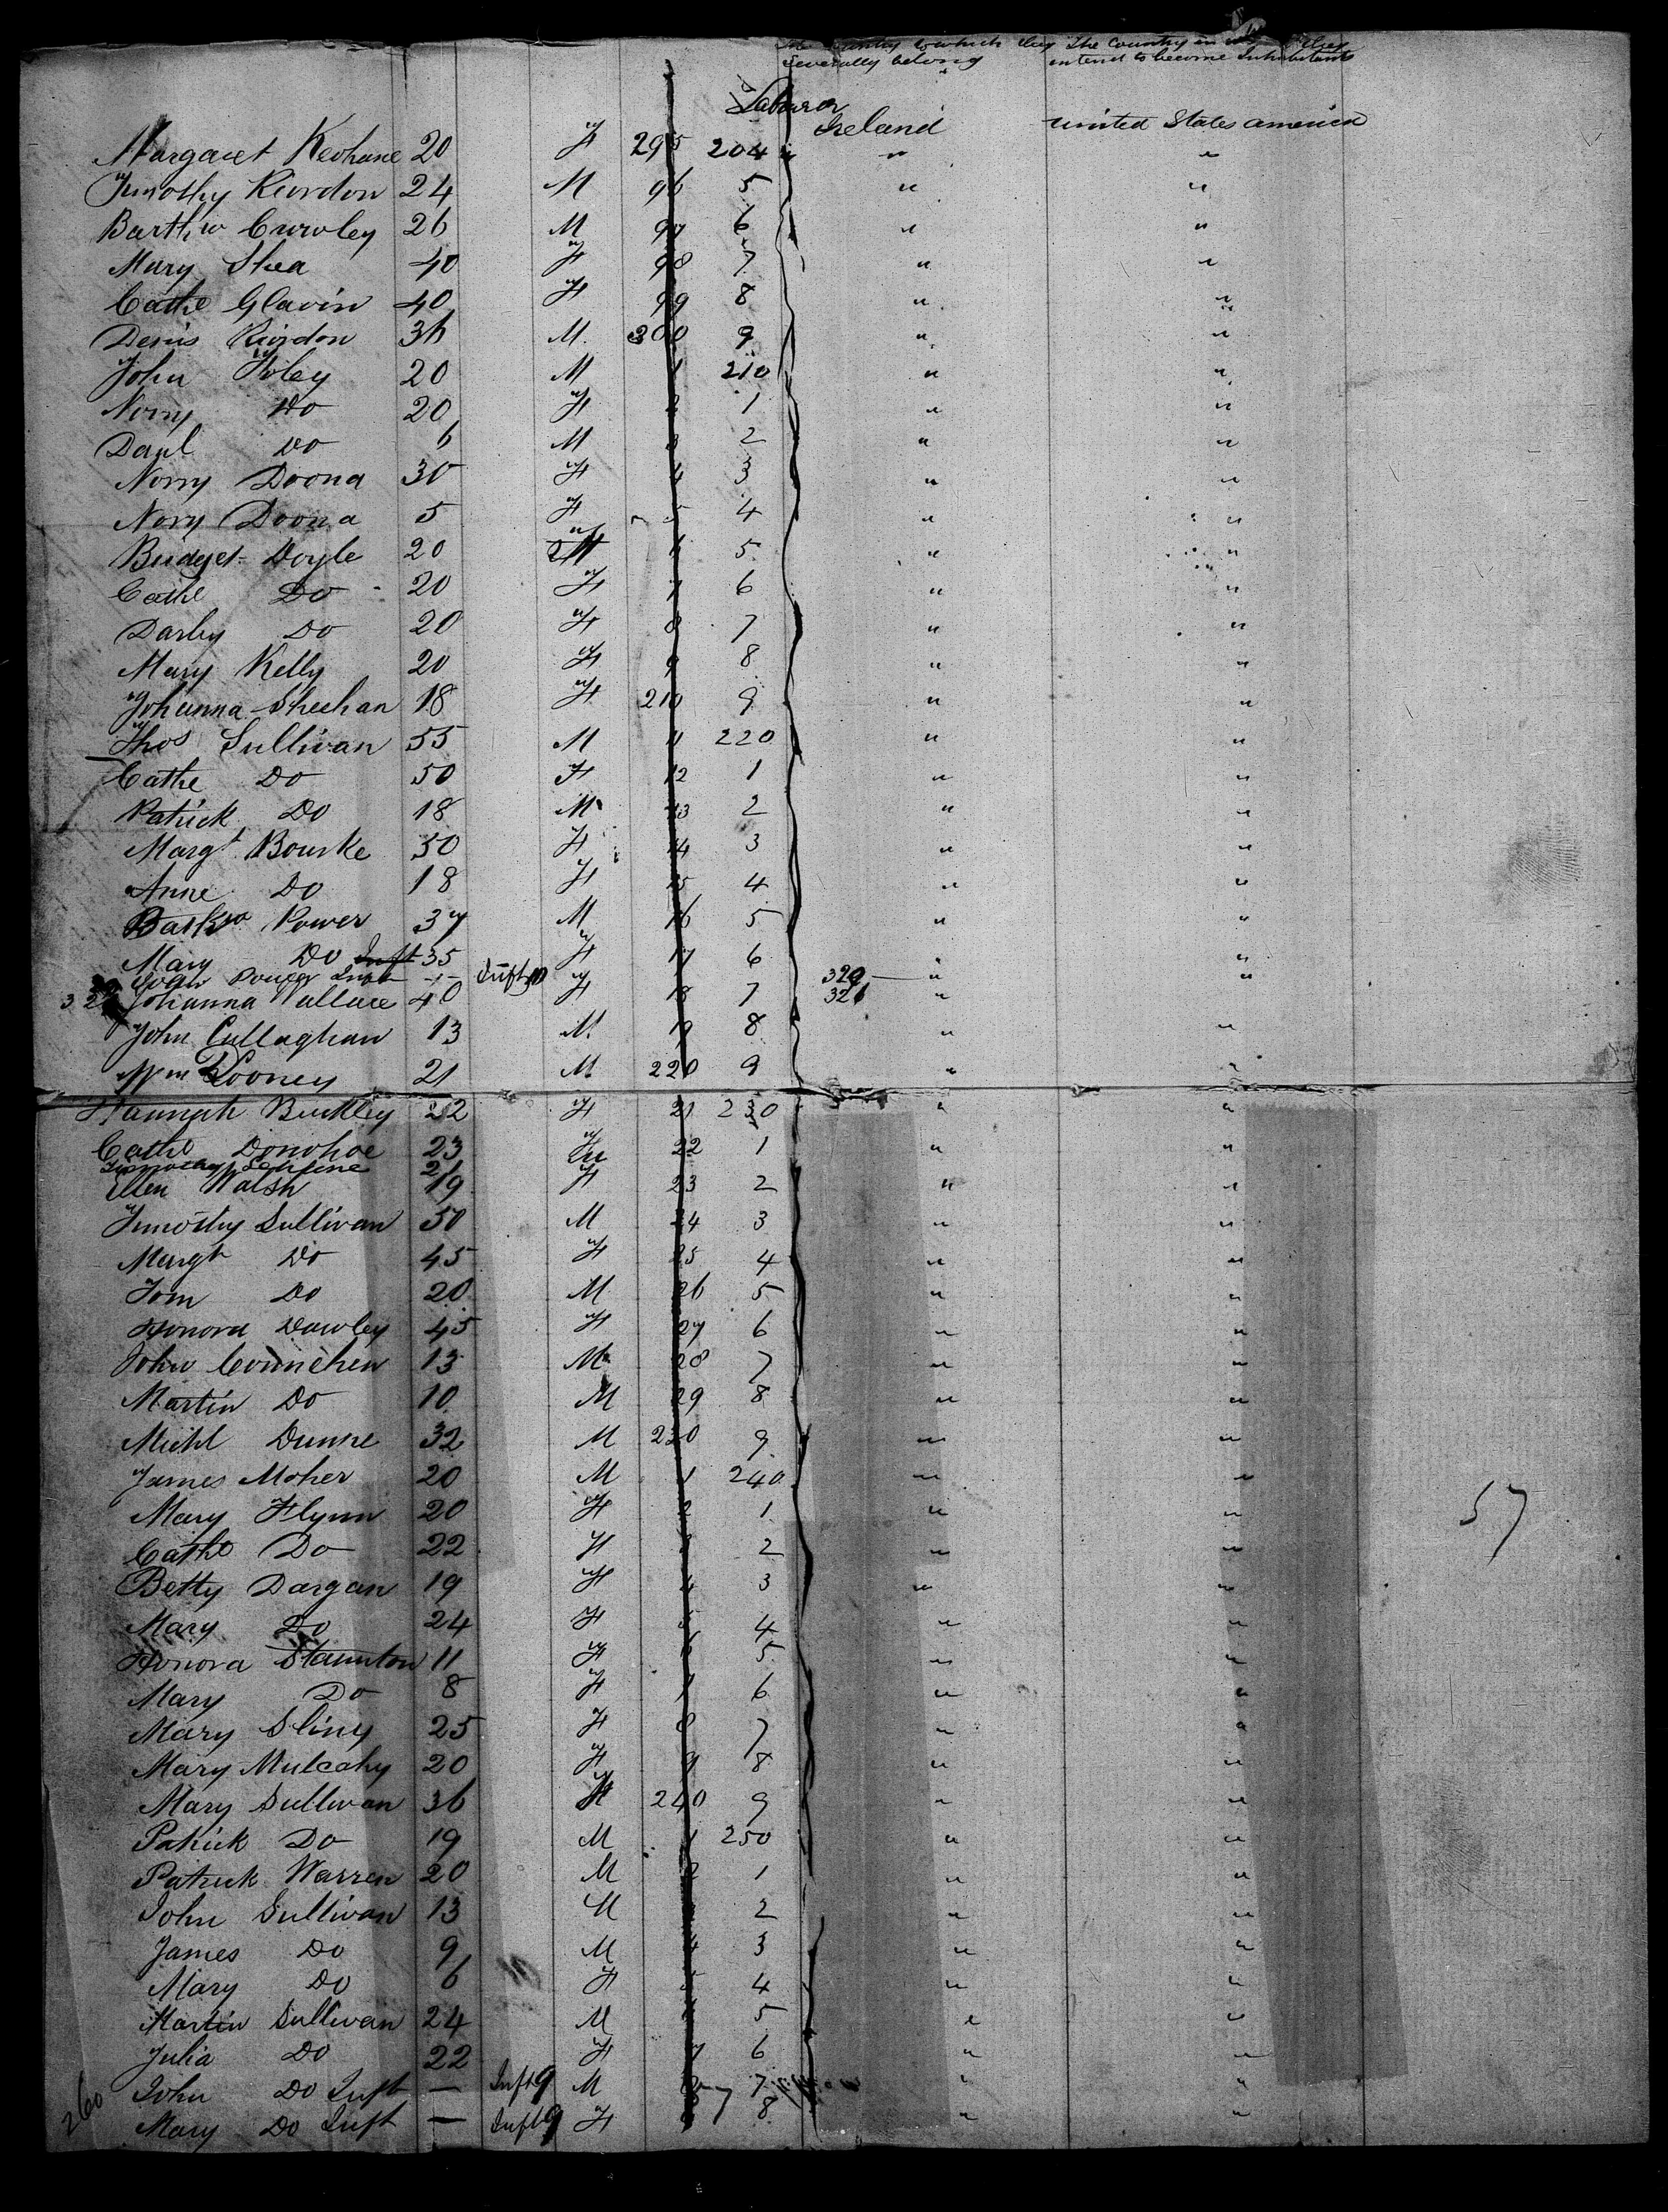 The Country to which they The Country in which they
severally belong intend to become Inhabitants
Labourer
Ireland United States america
Margaret Keohane 20 F 295 204 " "
Timothy Riordon 24 M 96 5 " "
Barthw Crowley 26 M 97 6 " "
Mary Shea 40 F 98 7 " "
Cathe Glavin 40 F 99 8 " "
Denis Riordon 36 M 300 9 " "
John Foley 20 M 1 210 " "
Norry Do 20 F 2 1 " "
Danl Do 6 M 3 2 " "
Norry Doona 30 F 4 3 " "
Nory Doona 5 F 5 4 " "
Bridget Doyle 20 F 6 5 " "
Cathe Do 20 F 7 6 " "
Darby Do 20 F 8 7 " "
Mary Kelly 20 F 9 8 " "
Johanna Sheehan 18 F 210 9 " "
Thos Sullivan 55 M 11 220 " "
Cathe Do 50 F 12 1 " "
Patrick Do 18 M 13 2 " "
Margt Bourke 50 F 14 3 " "
Anne Do 18 F 15 4 " "
Power 37 M 16 5 " "
Mary Do Inft 35 F 17 6 " "
Power Inft Inft 10 320 " "
Johanna Wallace 40 F 18 7 321 "
John Callaghan 13 M 19 8 " "
Wm Looney 21 M 220 9 " "
Hannah Buckley 22 F 21 230 " "
Cathe Donohoe 23 F 22 1 " "
Timothy 21
Ellen Walsh 19 F 23 2 " "
Timothy Sullivan 50 M 24 3 " "
Margt Do 45 F 25 4 " "
Tom Do 20 M 26 5 " "
Honora Dawley 45 F 27 6 " "
John Counehen 13 M 28 7 " "
Martin Do 10 M 29 8 " "
Michl Dunne 32 M 230 9 " "
James Moher 20 M 1 240 " "
Mary Flynn 20 F 2 1 " "
57
Cathe Do 22 F 3 2 " "
Betty Dargan 19 F 4 3 " "
Mary Do 24 F 5 4 " "
Honora Staunton 11 F 6 5 " "
Mary Do 8 F 7 6 " "
Mary Sliny 25 F 8 7 " "
Mary Mulcahy 20 F 9 8 " "
Mary Sullivan 36 F 240 9 " "
Patrick Do 19 M 1 250 " "
Patrick Warren 20 M 2 1 " "
John Sullivan 13 M 3 2 " "
James Do 9 M 4 3 " "
Mary Do 6 F 5 4 " "
Martin Sullivan 24 M 6 5 " "
Julia Do 22 F 7 6 " "
John Do Inft — Inft 9 M 8 7 " "
260 Mary Do Inft — Inft 9 F 8 " "